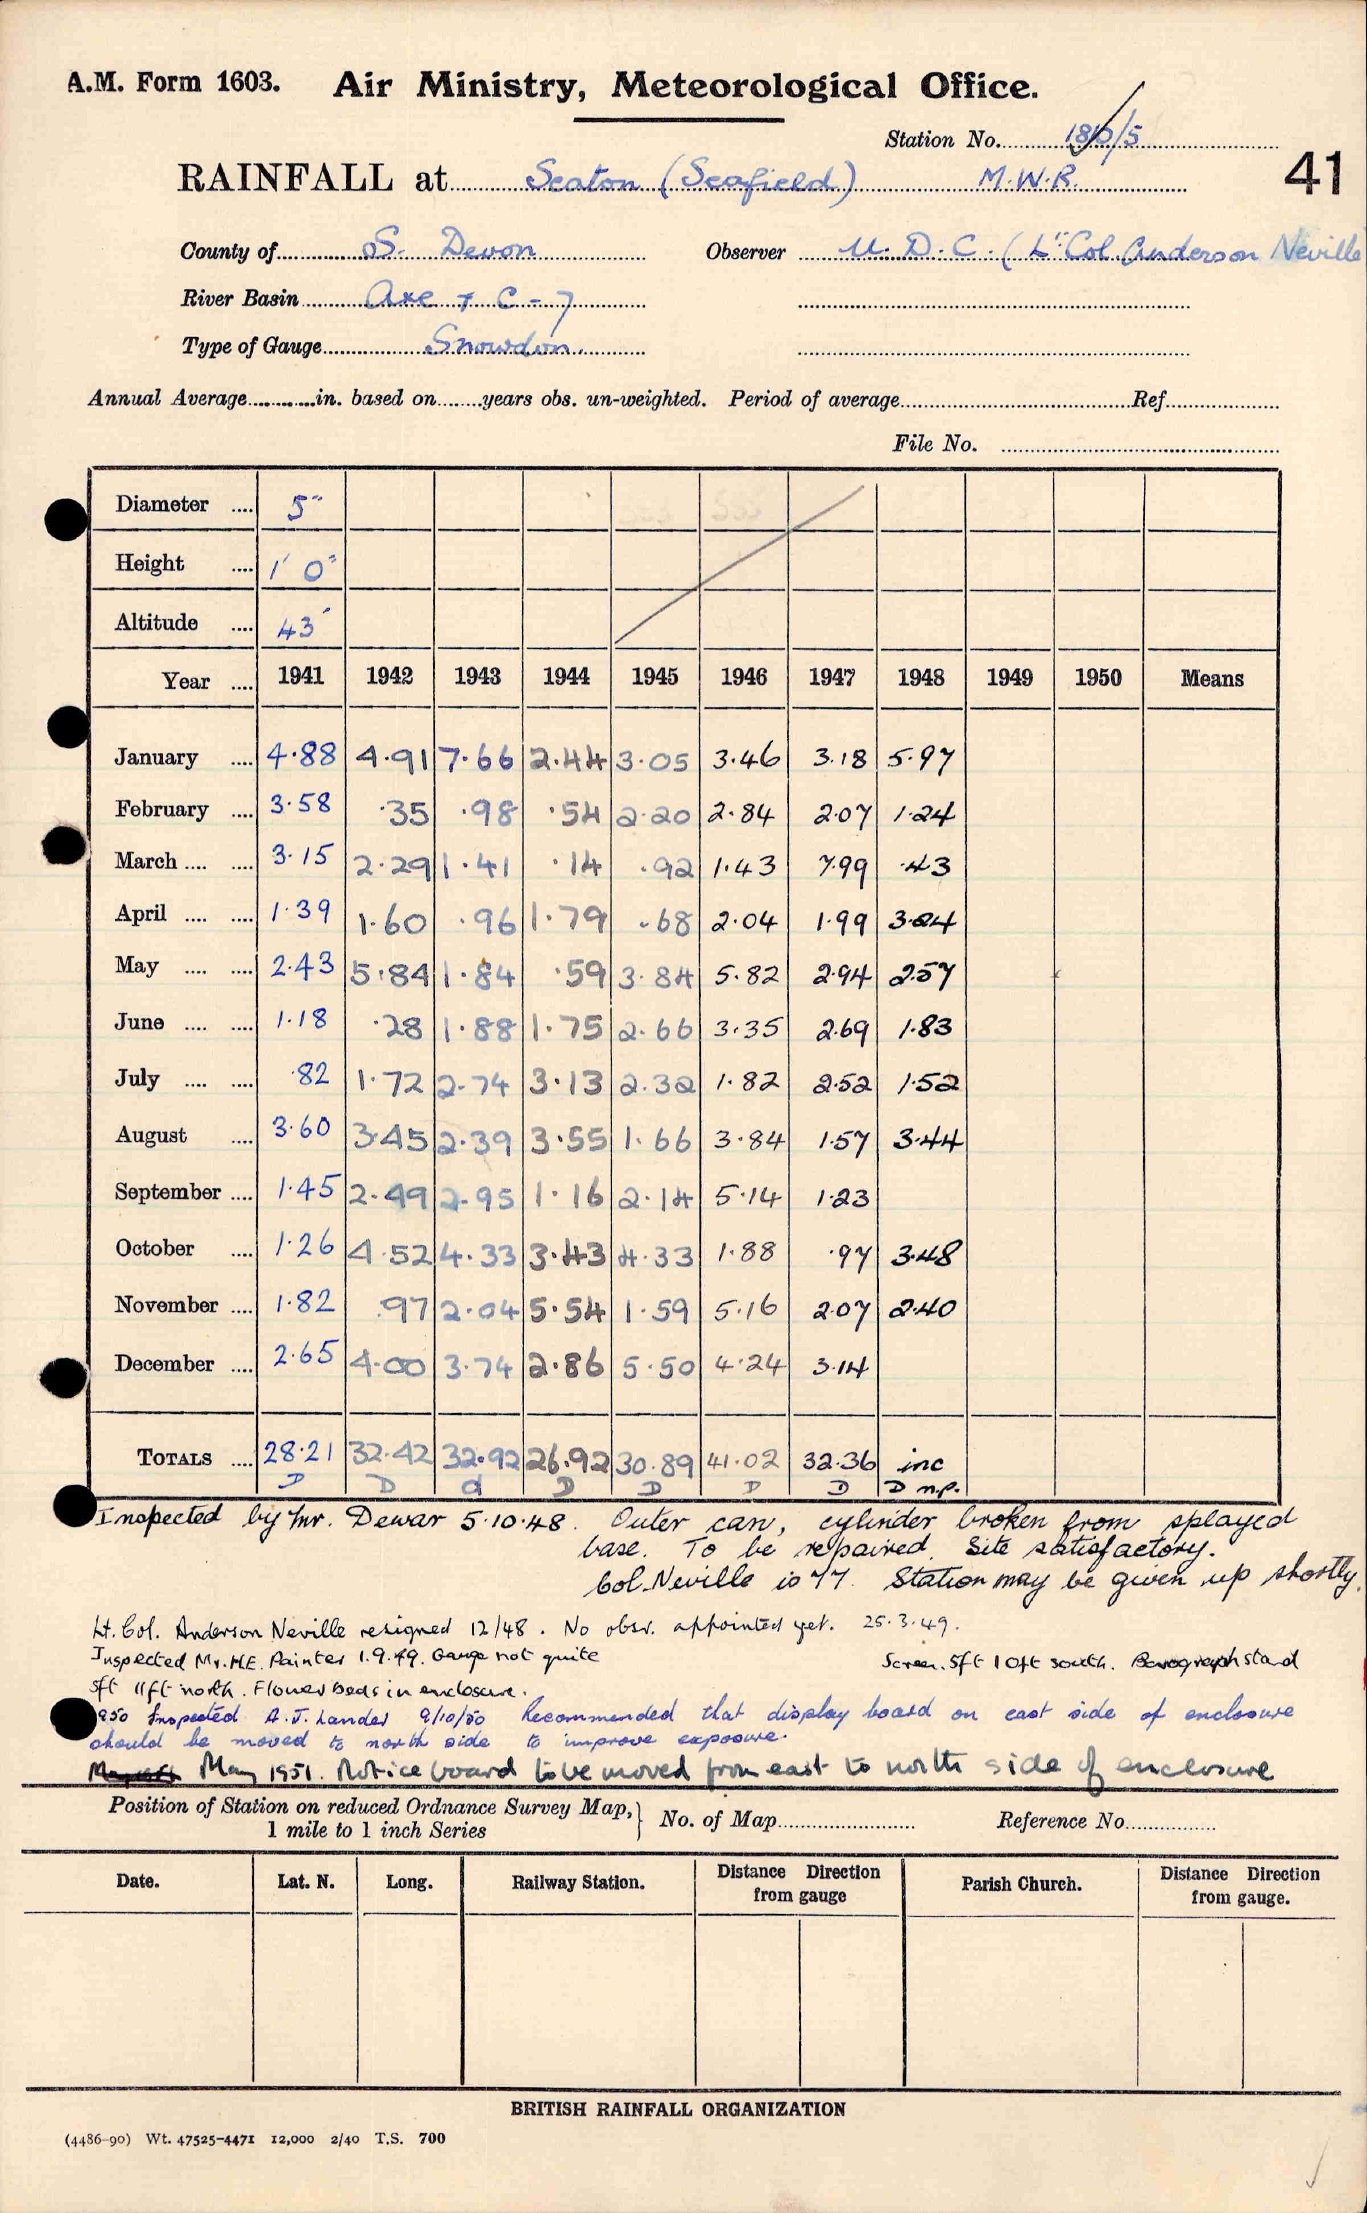 A.M. Form 1603. Air Ministry, Meteorological Office.
Station No. 1810/5
RAINFALL at Seaton (Seafield) M.W.R. 41
County of S. Devon Observer U.D.C. (Lt Col. Anderson Neville
River Basin Axe + C-7
Type of Gauge Snowdon.
Annual Average in. based on years obs. un-weighted. Period of average Ref
File No.
Diameter 5"
Height 1' 0"
Altitude 43'
Year 1941 1942 1943 1944 1945 1946 1947 1948 1949 1950 Means
January 4.88 4.91 7.66 2.44 3.05 3.46 3.18 5.97
February 3.58 .35 .98 .54 2.20 2.84 2.07 1.24
March 3.15 2.29 1.41 .14 .92 1.43 7.99 .43
April 1.39 1.60 .96 1.79 .68 2.04 1.99 3.24
May 2.43 5.84 1.84 .59 3.84 5.82 2.94 2.57
June 1.18 .28 1.88 1.75 2.66 3.35 2.69 1.83
July .82 1.72 2.74 3.13 2.32 1.82 2.52 1.52
August 3.60 3.45 2.39 3.55 1.66 3.84 1.57 3.44
September 1.45 2.49 2.95 1.16 2.14 5.14 1.23
October 1.26 4.52 4.33 3.43 4.33 1.88 .97 3.48
November 1.82 .97 2.04 5.54 1.59 5.16 2.07 2.40
December 2.65 4.00 3.74 2.86 5.50 4.24 3.14
TOTALS 28.21 32.42 32.92 26.92 30.89 41.02 32.36 inc
D D d D D D D D n.p.
Inspected by Mr. Dewar 5.10.48. Outer can, cylinder broken from splayed
base. To be repaired. Site satisfactory.
Col. Neville is 77. Station may be given up shortly.
Lt. Col. Anderson Neville resigned 12/48. No obsr. appointed yet. 25.3.49.
Inspected Mr. H.E. Painter 1.9.49. Gauge not quite Screen 5ft 10ft south. Barograph stand
5ft 11ft north. Flower beds in enclosure.
950 Inspected A. J. Lander 9/10/50 Recommended that display board on east side of enclosure
should be moved to north side to improve exposure.
May 1951. Notice board to be moved from east to north side of enclosure
Position of Station on reduced Ordnance Survey Map, 1 mile to 1 inch Series } No. of Map Reference No.
Date. Lat. N. Long. Railway Station. Distance Direction from gauge Parish Church. Distance Direction from gauge.
BRITISH RAINFALL ORGANIZATION
(4486-90) Wt. 47525-4471 12,000 2/40 T.S. 700